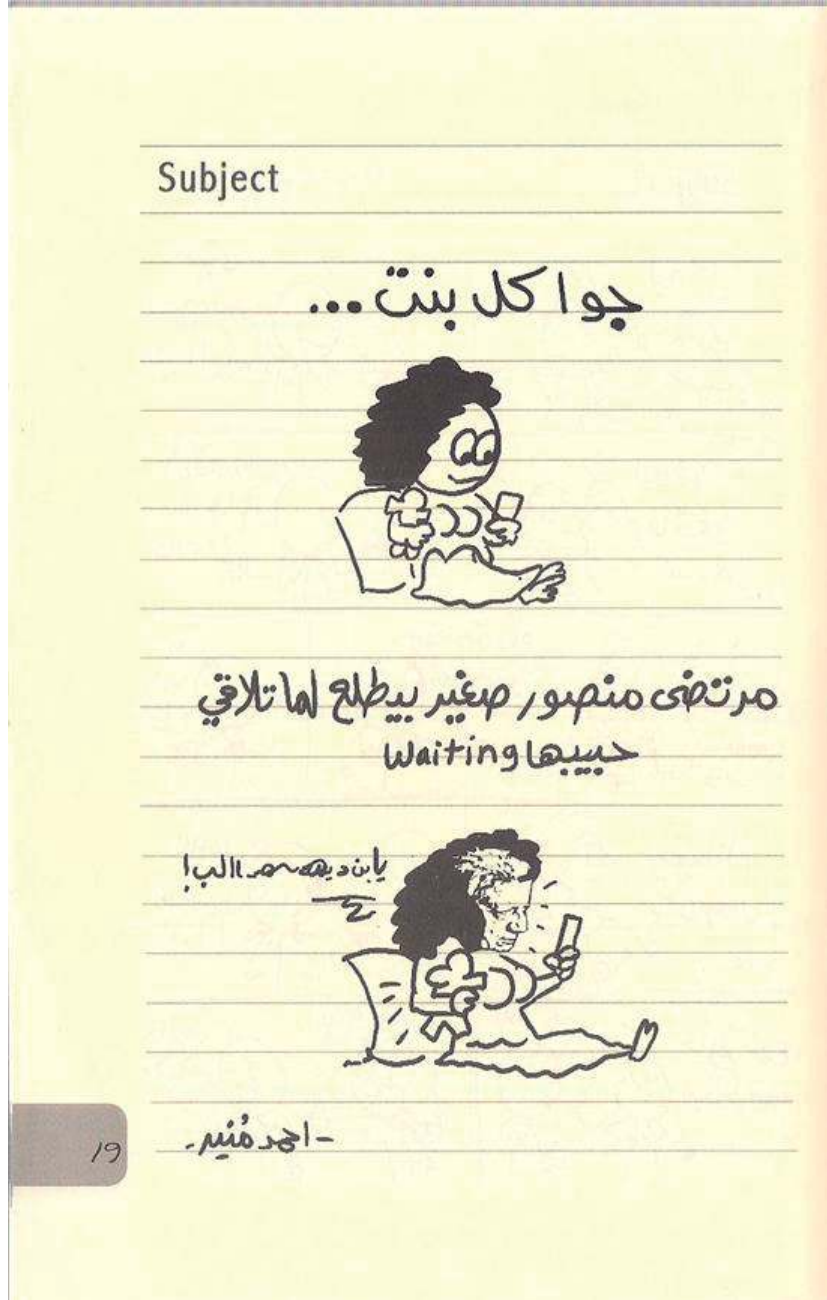 Subject
جوا كل بنت...
مرتضى منصور صغير بيطلع لما تلاقي
حبيبها Waiting
يا بن
- احمد مُنير -
19